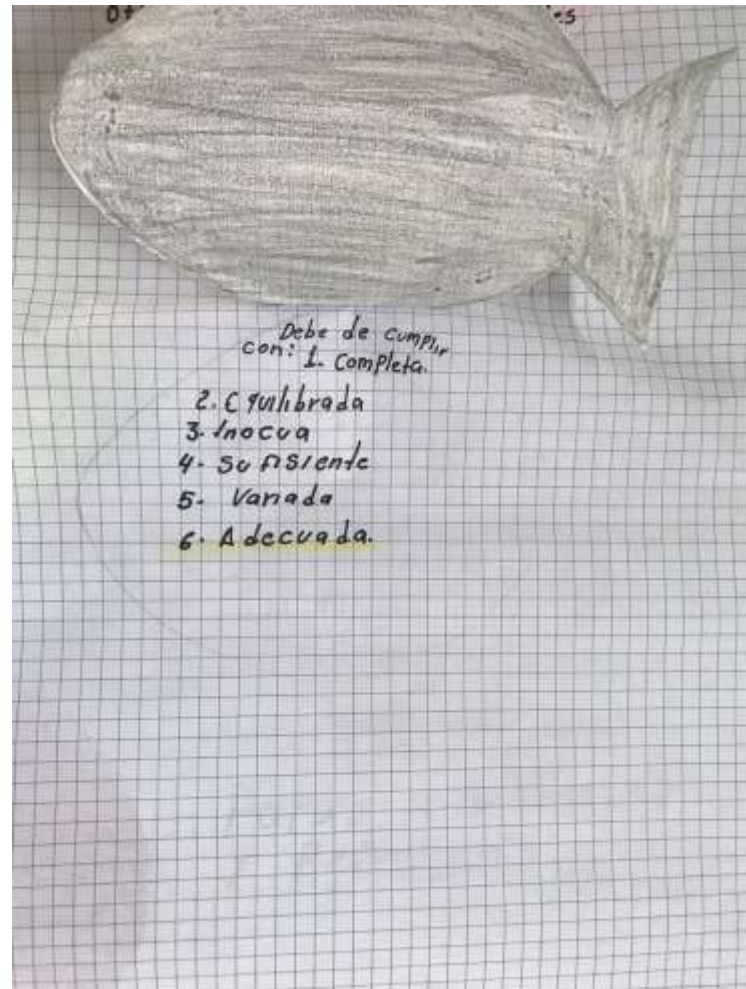 Debe de cumplir
con: 1. Completa.
2. Equilibrada
3. Inocua
4. Sufisiente
5. Variada
6. Adecuada.